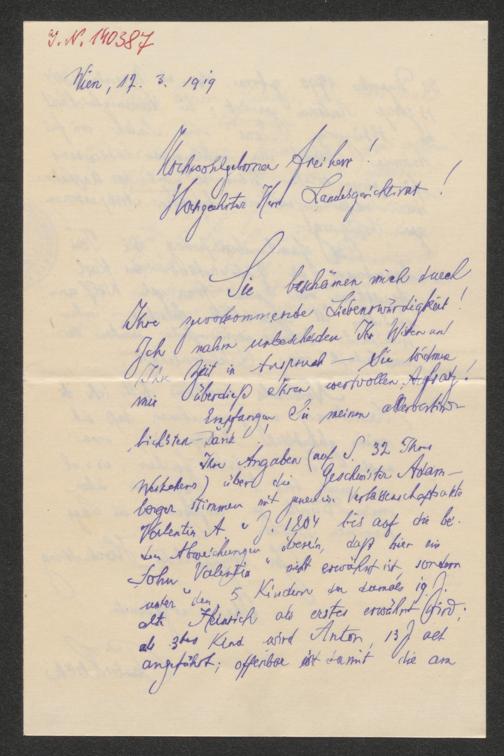 J. N. 140387
Wien, 17. 3. 1919
Hochwohlgeborner Freiherr!
Hochgeehrter Herr Landesgerichtsrat!
Sie beschämen mich durch
Ihre zuvorkommende Liebenswürdigkeit!
Ich nahm unbescheiden Ihr Wissen und
Ihre Zeit in Anspruch – Sie widmen
mir überdieß Ihren wertvollen Aufsatz!
Empfangen Sie meinen allerverbind-
lichsten Dank!
Ihre Angaben (auf S. 32 Ihres
Werkchens) über die Geschwister Adam-
berger stimmen mit jenen im Verlassenschaftsakte
Valentin A. v. J. 1804 bis auf die bei-
den Abweichungen überein, daß hier ein
"Sohn Valentin" nicht erwähnt ist sondern
unter den 5 Kindern der damals 19 J.
alte Heinrich als erstes erwähnt wird;
als 3tes Kind wird Anton, 13 J alt
angeführt; offenbar ist damit die am